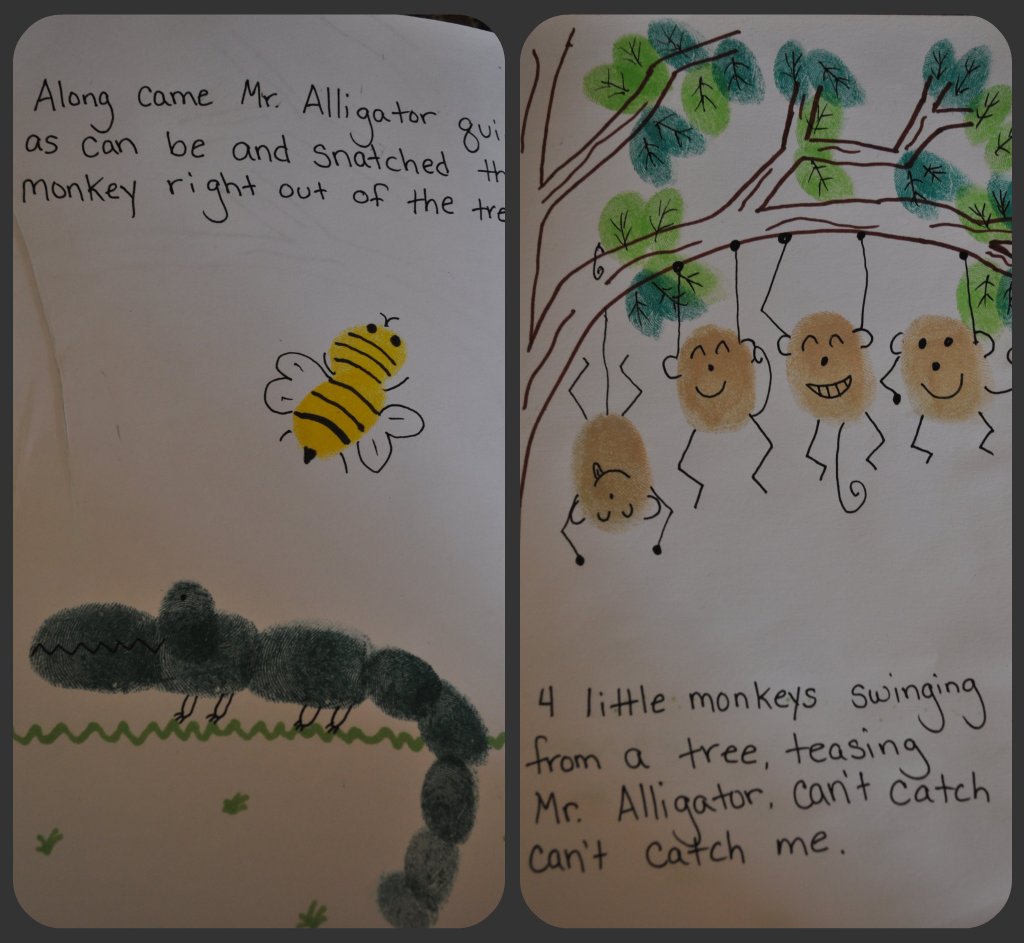 Along came Mr. Alligator qui
as can be and snatched th
monkey right out of the tre
4 little monkeys swinging
from a tree, teasing
Mr. Alligator. can't catch
can't catch me.